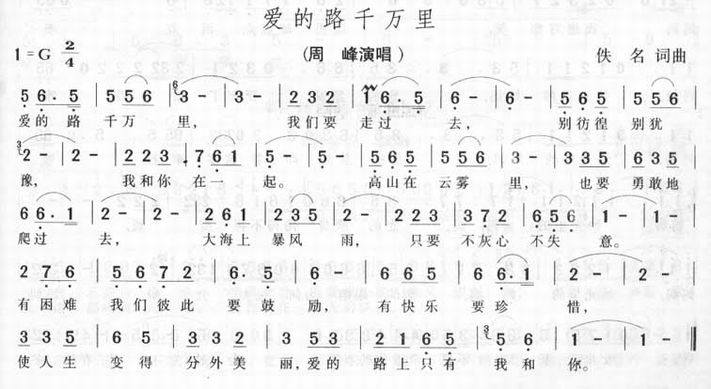 爱的路千万里
1=G 2/4 (周 峰演唱) 佚 名 词曲
5 6.5 | 5 5 6 | 3 - | 3 - | 2 3 2 | 6.5 | 6 - | 6 - | 5 6 5 | 5 5 6 |
爱的 路 千万 里, 我们要 走过 去, 别彷徨 别犹
2 - | 2 - | 2 2 3 | .7 6 1 | 5 - | 5 - | 5 6 5 | 5 5 6 | 3 - | 3 3 5 | 6 3 5 |
豫, 我和你 在一 起。 高山在 云雾 里, 也要 勇敢地
6 6.1 | 2 - | 2 - | 2 6 1 | 2 3 5 | 2 - | 2 2 3 | 3 7 2 | 6 5 6 | 1 - | 1 - |
爬过 去, 大海上 暴风 雨, 只要 不灰心 不失 意。
2 7 6 | 5 6 7 2 | 6. 5 | 6 - | 6 6 5 | 6 6.1 | 2 - | 2 - |
有困难 我们彼此 要鼓 励, 有快乐 要珍 惜,
3 3 5 | 3 2 | 3 5 3 2 | 3 5 5 | 2 1 6 5 | 5 6 | 1 - | 1 - ‖
使人生 变得 分外美 丽,爱的 路上只有 我和 你。